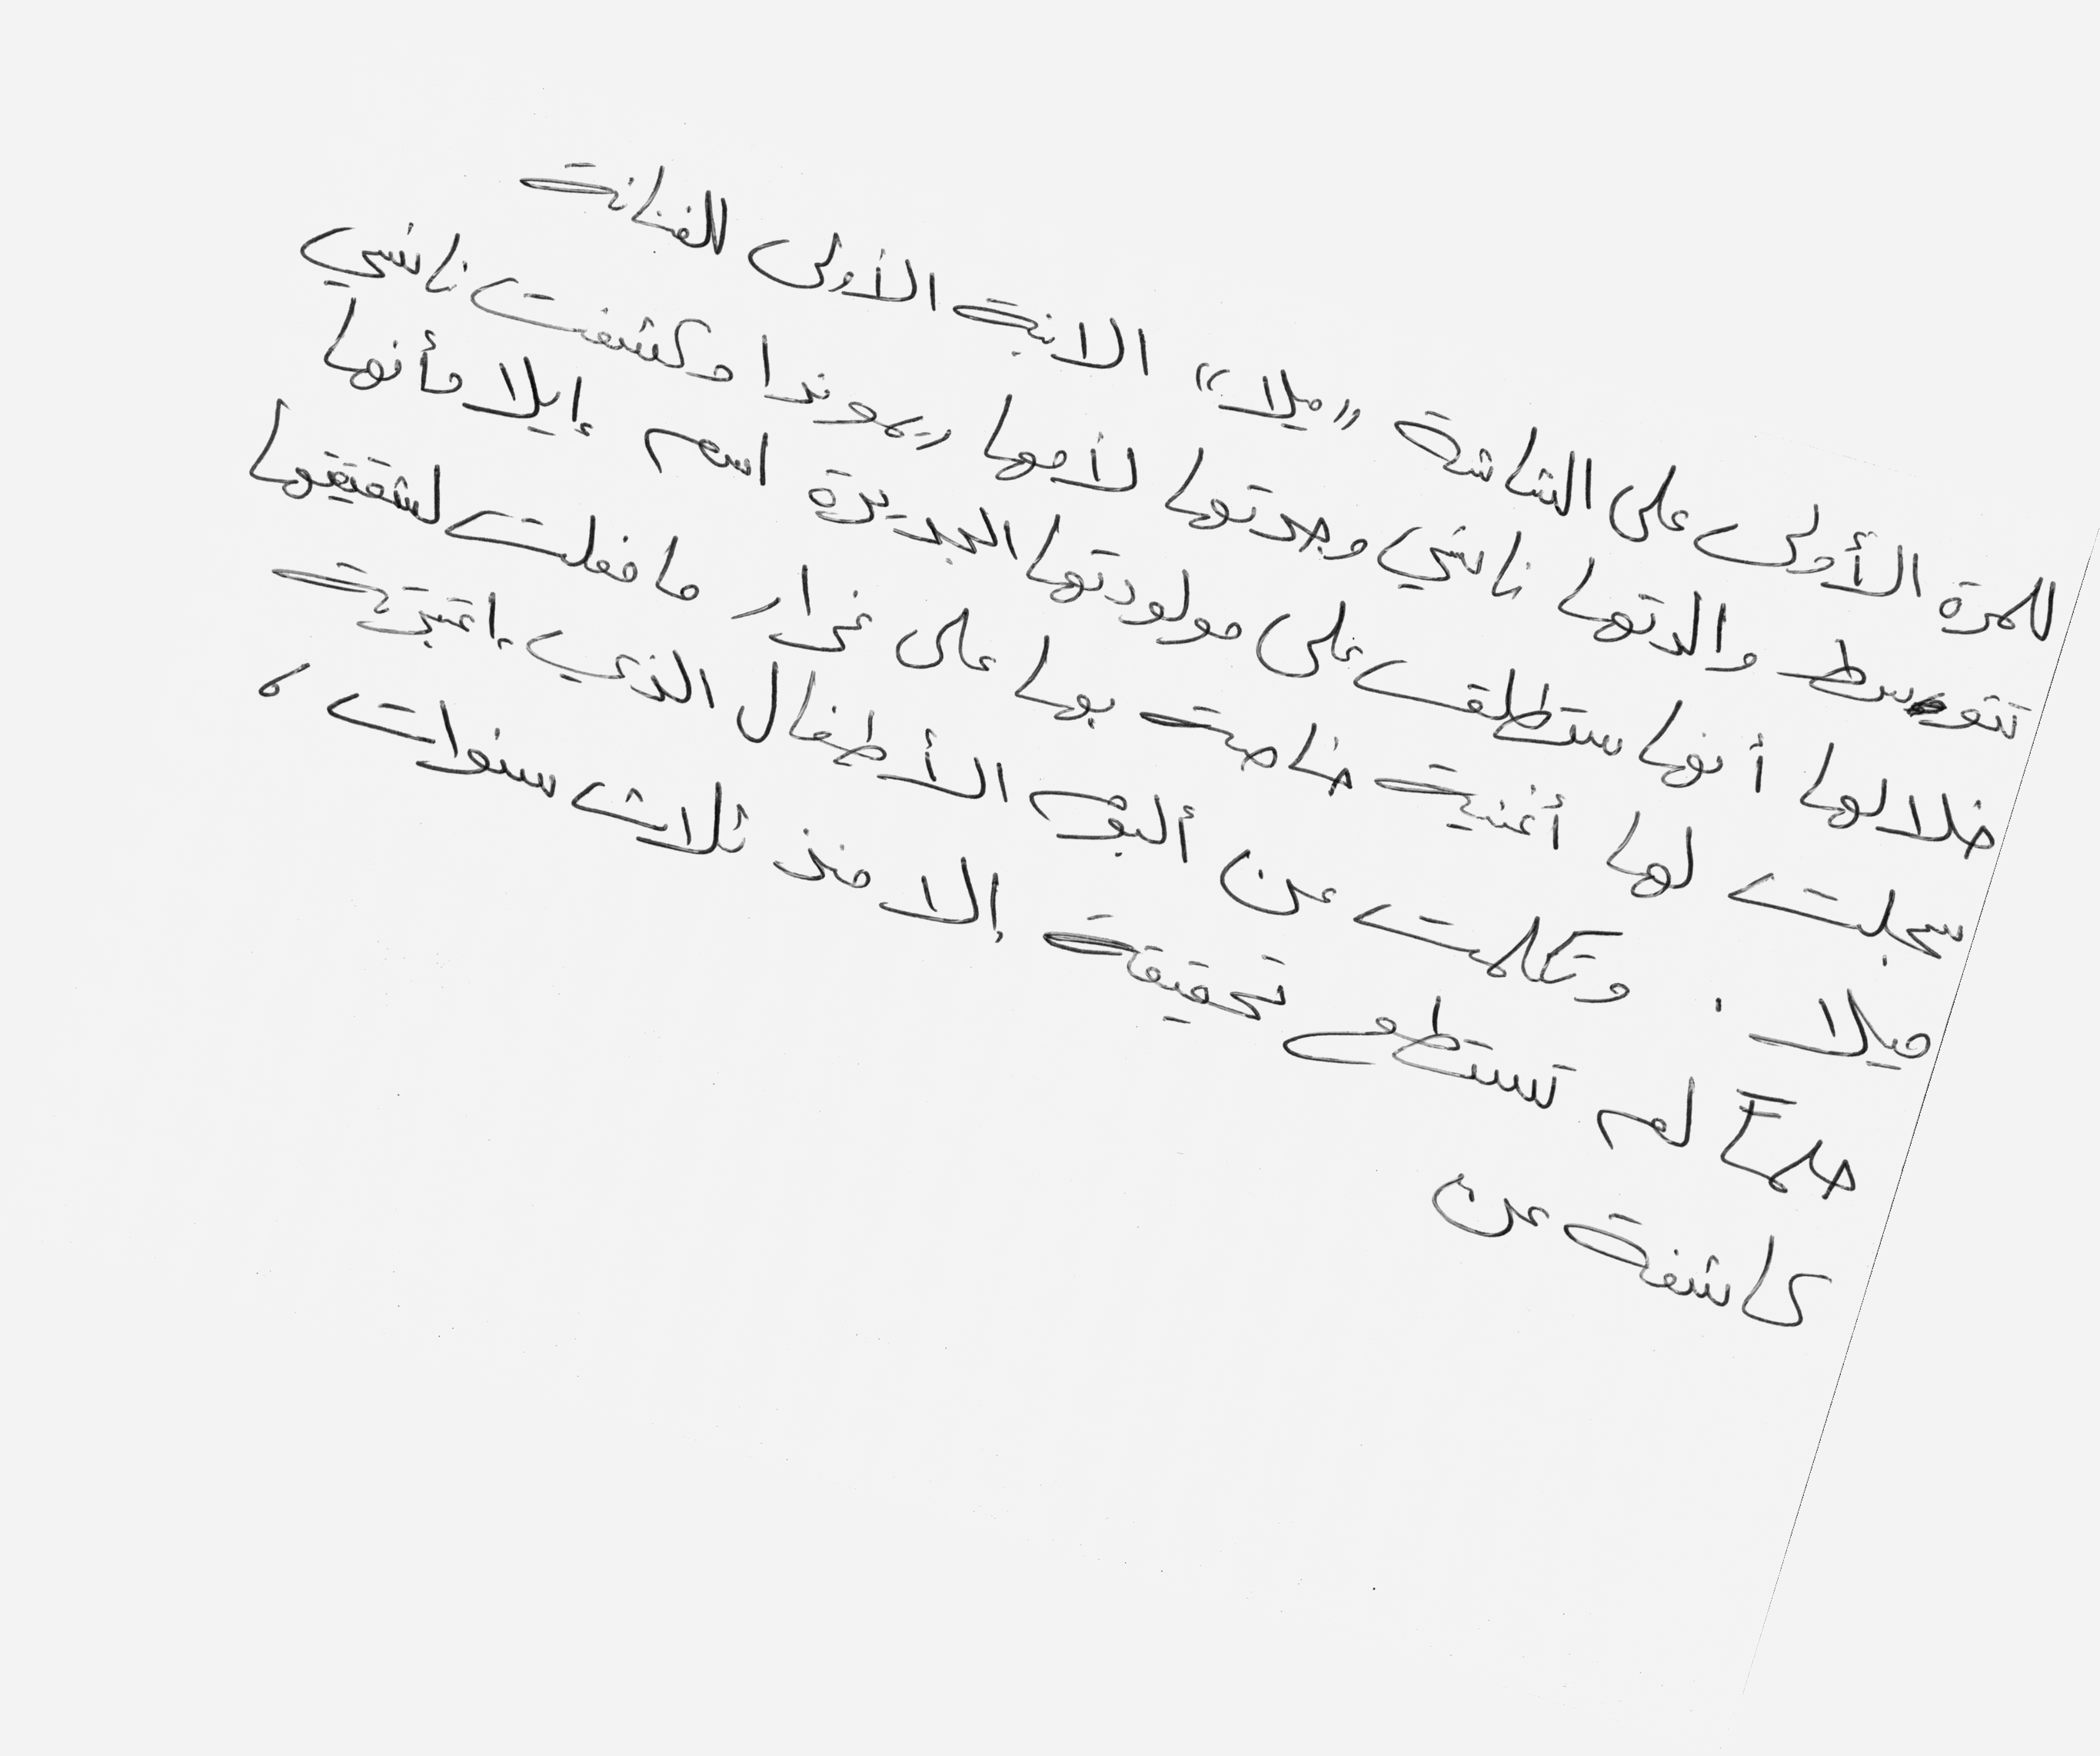 للمرة الأولى على الشاشة "ميلا" الابنة الأولى للفنانة
تتوسط والدتها نانسي وجدتها لأمها ريموندا وكشفت نانسي
خلالها أنها ستطلق على مولودتها الجديدة اسم إيلا وأنها
سجلت لها أغنية خاصة بها على غرار ما فعلت لشقيقتها
ميلا. وتكلمت عن ألبوم الأطفال الذي إعتبرته
حلماً لم تستطع تحقيقه إلا منذ ثلاث سنوات،
كاشفة عن